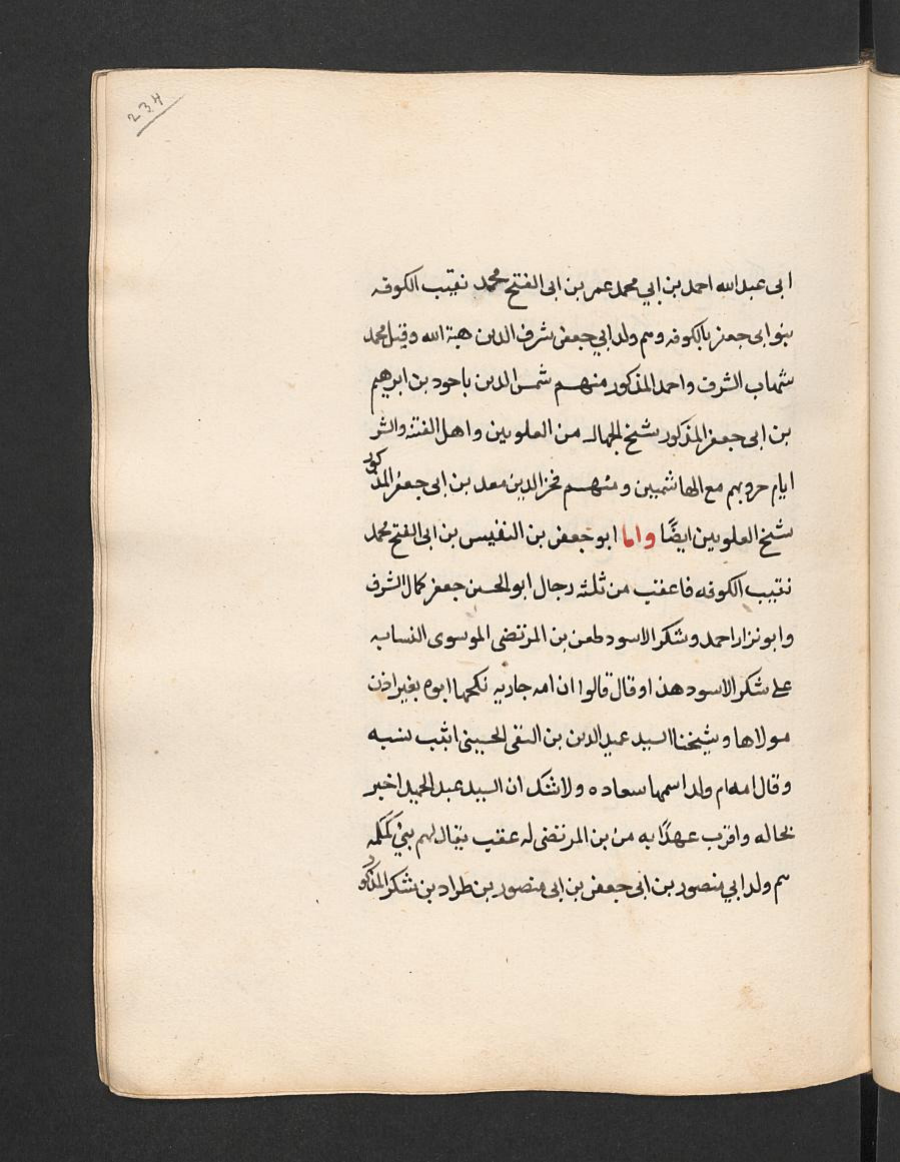 234
ابى عبد الله احمد بن ابي محمد عمر بن ابى الفتح محمد نقيب الكوفه
بنو ابى جعفر بالكوفه وهم ولد ابي جعفر شرف الدين هبة الله وقيل محمد
شهاب الشرف واحمد المذكور منهم شمس الدين باحود بن ابرهيم
بن ابى جعفر المذكور شيخ الجهال من العلويين واهل الفتنه والشر
ايام حروبهم مع الهاشميين ومنهم فخر الدين معد بن ابى جعفر المذكور
شيخ العلويين ايضًا واما ابو جعفر بن النفيس بن ابى الفتح محمد
نقيب الكوفه فاعقب من ثلثه رجال ابو الحسن جعفر كمال الشرف
وابو نزار احمد وشكر الاسود طعن بن المرتضى الموسوى النسابه
على شكر الاسود هذا وقال قالوا ان امه جاريه نكحها ابوه بغير اذن
مولاها وشيخنا السيد عبد الدين بن التقى الحسينى اثبت نسبه
وقال امه ام ولد اسمها سعاده ولا شك ان السيد عبد الحميد اخبر
بحاله واقرب عهدًا به من بن المرتضى له عقب يقال لهم بني كمكمه
هم ولد ابي منصور بن ابى جعفر بن ابى منصور بن طراد بن شكر المذكور